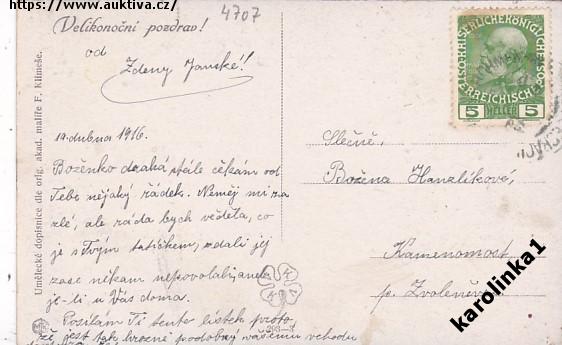 https://www.auktiva.cz/
4707
Velikonoční pozdrav!
od
Zdeny Janské!
19. dubna 1916.
Boženko drahá stále čekám od
Tebe nějaký řádek. Neměj mi za
zlé, ale ráda bych věděla, co
je s Tvým tatíčkem, zdali jej
zase nikam nepovolali, anebo
je-li u Vás doma.
Posílám Ti tento lístek proto
že jest tak hrozně podobný vašemu vchodu
Umělecké dopisnice dle orig. akad. malíře F. Klimeše.
KAISERLICHE KÖNIGLICHE
ÖSTERREICHISCHE
5 HELLER 5
Slečně,
Božena Hanzlíková,
Kamenomost
p. Zvoleněves
karolinka1